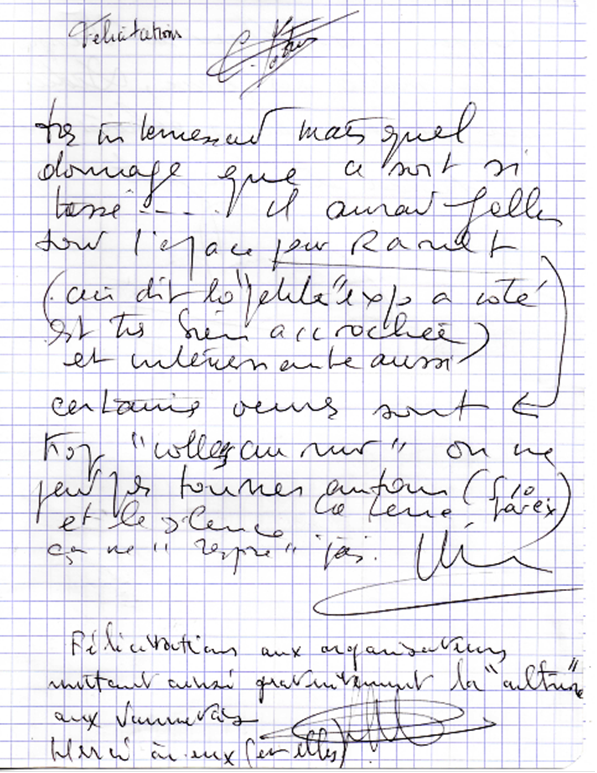 Félicitations
très intéressant mais quel
dommage que ce soit si
tassé ..... il aurait fallu
tout l'espace pour
(ceci dit la "petite" expo a coté
est très bien accrochée)
et intéressante aussi
certaines oeuvres sont
trop "collées au mur" on ne
peut pas tourner autour (
et le silence la terre
ça ne "respire" pas.
Félicitations aux organisateurs
mettant ainsi gratuitement la "culture"
aux Vannetais
Merci à eux (et elles)